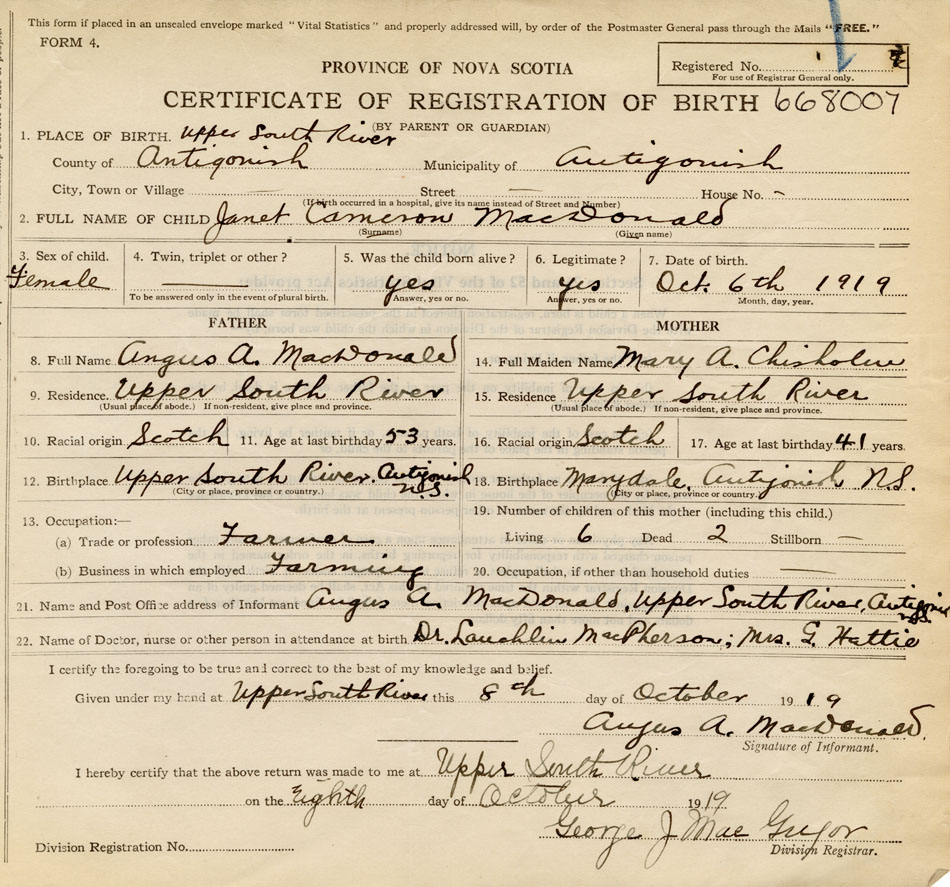 This form if placed in an unsealed envelope marked "Vital Statistics" and properly addressed will, by order of the Postmaster General pass through the Mails "FREE."
FORM 4.
Registered No.
For use of Registrar General only.
PROVINCE OF NOVA SCOTIA
CERTIFICATE OF REGISTRATION OF BIRTH 668007
(BY PARENT OR GUARDIAN)
1. PLACE OF BIRTH. Upper South River
County of Antigonish Municipality of Antigonish
City, Town or Village — Street — House No. -
(If birth occurred in a hospital, give its name instead of Street and Number)
2. FULL NAME OF CHILD Janet Cameron MacDonald
(Surname) (Given name)
3. Sex of child. 4. Twin, triplet or other? 5. Was the child born alive? 6. Legitimate? 7. Date of birth.
Female — yes yes Oct. 6th 1919
To be answered only in the event of plural birth. Answer, yes or no. Answer, yes or no. Month, day, year.
FATHER MOTHER
8. Full Name Angus A. MacDonald 14. Full Maiden Name Mary A. Chisholm
9. Residence. Upper South River 15. Residence Upper South River
(Usual place of abode.) If non-resident, give place and province. (Usual place of abode.) If non-resident, give place and province.
10. Racial origin Scotch 11. Age at last birthday 53 years. 16. Racial origin Scotch 17. Age at last birthday 41 years.
12. Birthplace. Upper South River. Antigonish N.S. 18. Birthplace Marydale, Antigonish N.S.
(City or place, province or country.) (City or place, province or country.)
13. Occupation:— 19. Number of children of this mother (including this child.)
(a) Trade or profession Farmer Living 6 Dead 2 Stillborn —
(b) Business in which employed Farming 20. Occupation, if other than household duties —
21. Name and Post Office address of Informant Angus A. MacDonald, Upper South River, Antigonish N.S.
22. Name of Doctor, nurse or other person in attendance at birth. Dr. Lauchlin MacPherson; Mrs. G. Hattie
I certify the foregoing to be true and correct to the best of my knowledge and belief.
Given under my hand at Upper South River this 8th day of October 1919
Angus A. MacDonald.
Signature of Informant.
I hereby certify that the above return was made to me at Upper South River
on the Eighth day of October 1919
George J Mac Gregor
Division Registrar.
Division Registration No.